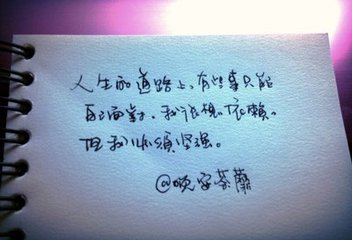 人生的道路上，有些事只能
自己面对，我很想依赖。
但我必须坚强。
@晚安荼蘼